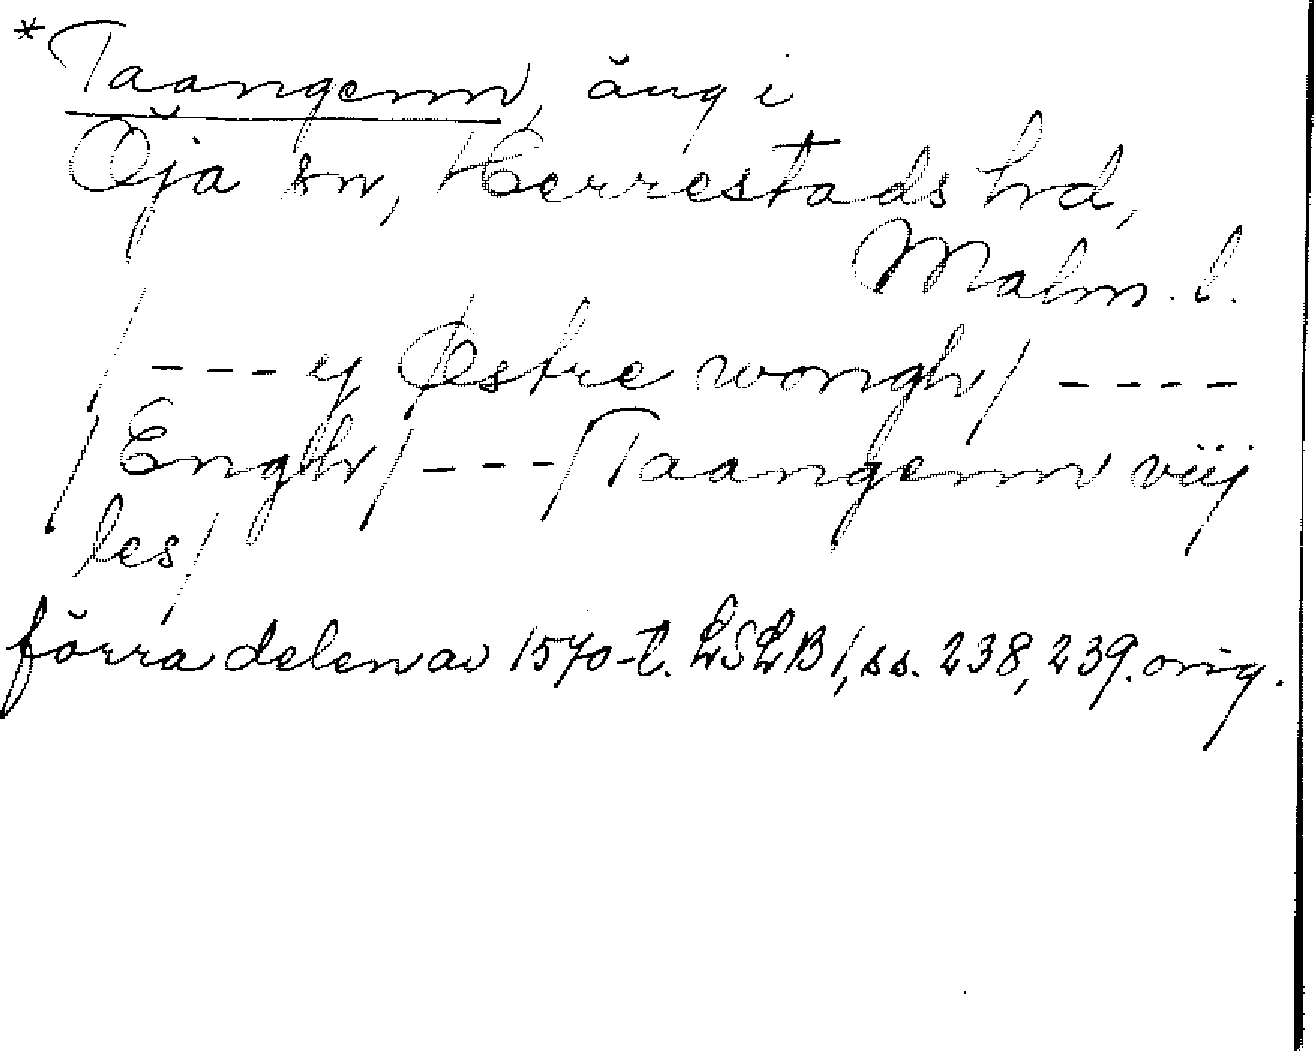 *Taangenn, äng i
Öja sn, Herrestads hd,
Malm. l.
/ --- y Østre wongh / ----
/ Engh / --- / Taangenn viij
les /
förra delen av 1570-t. LSLB 1, ss. 238, 239. orig.